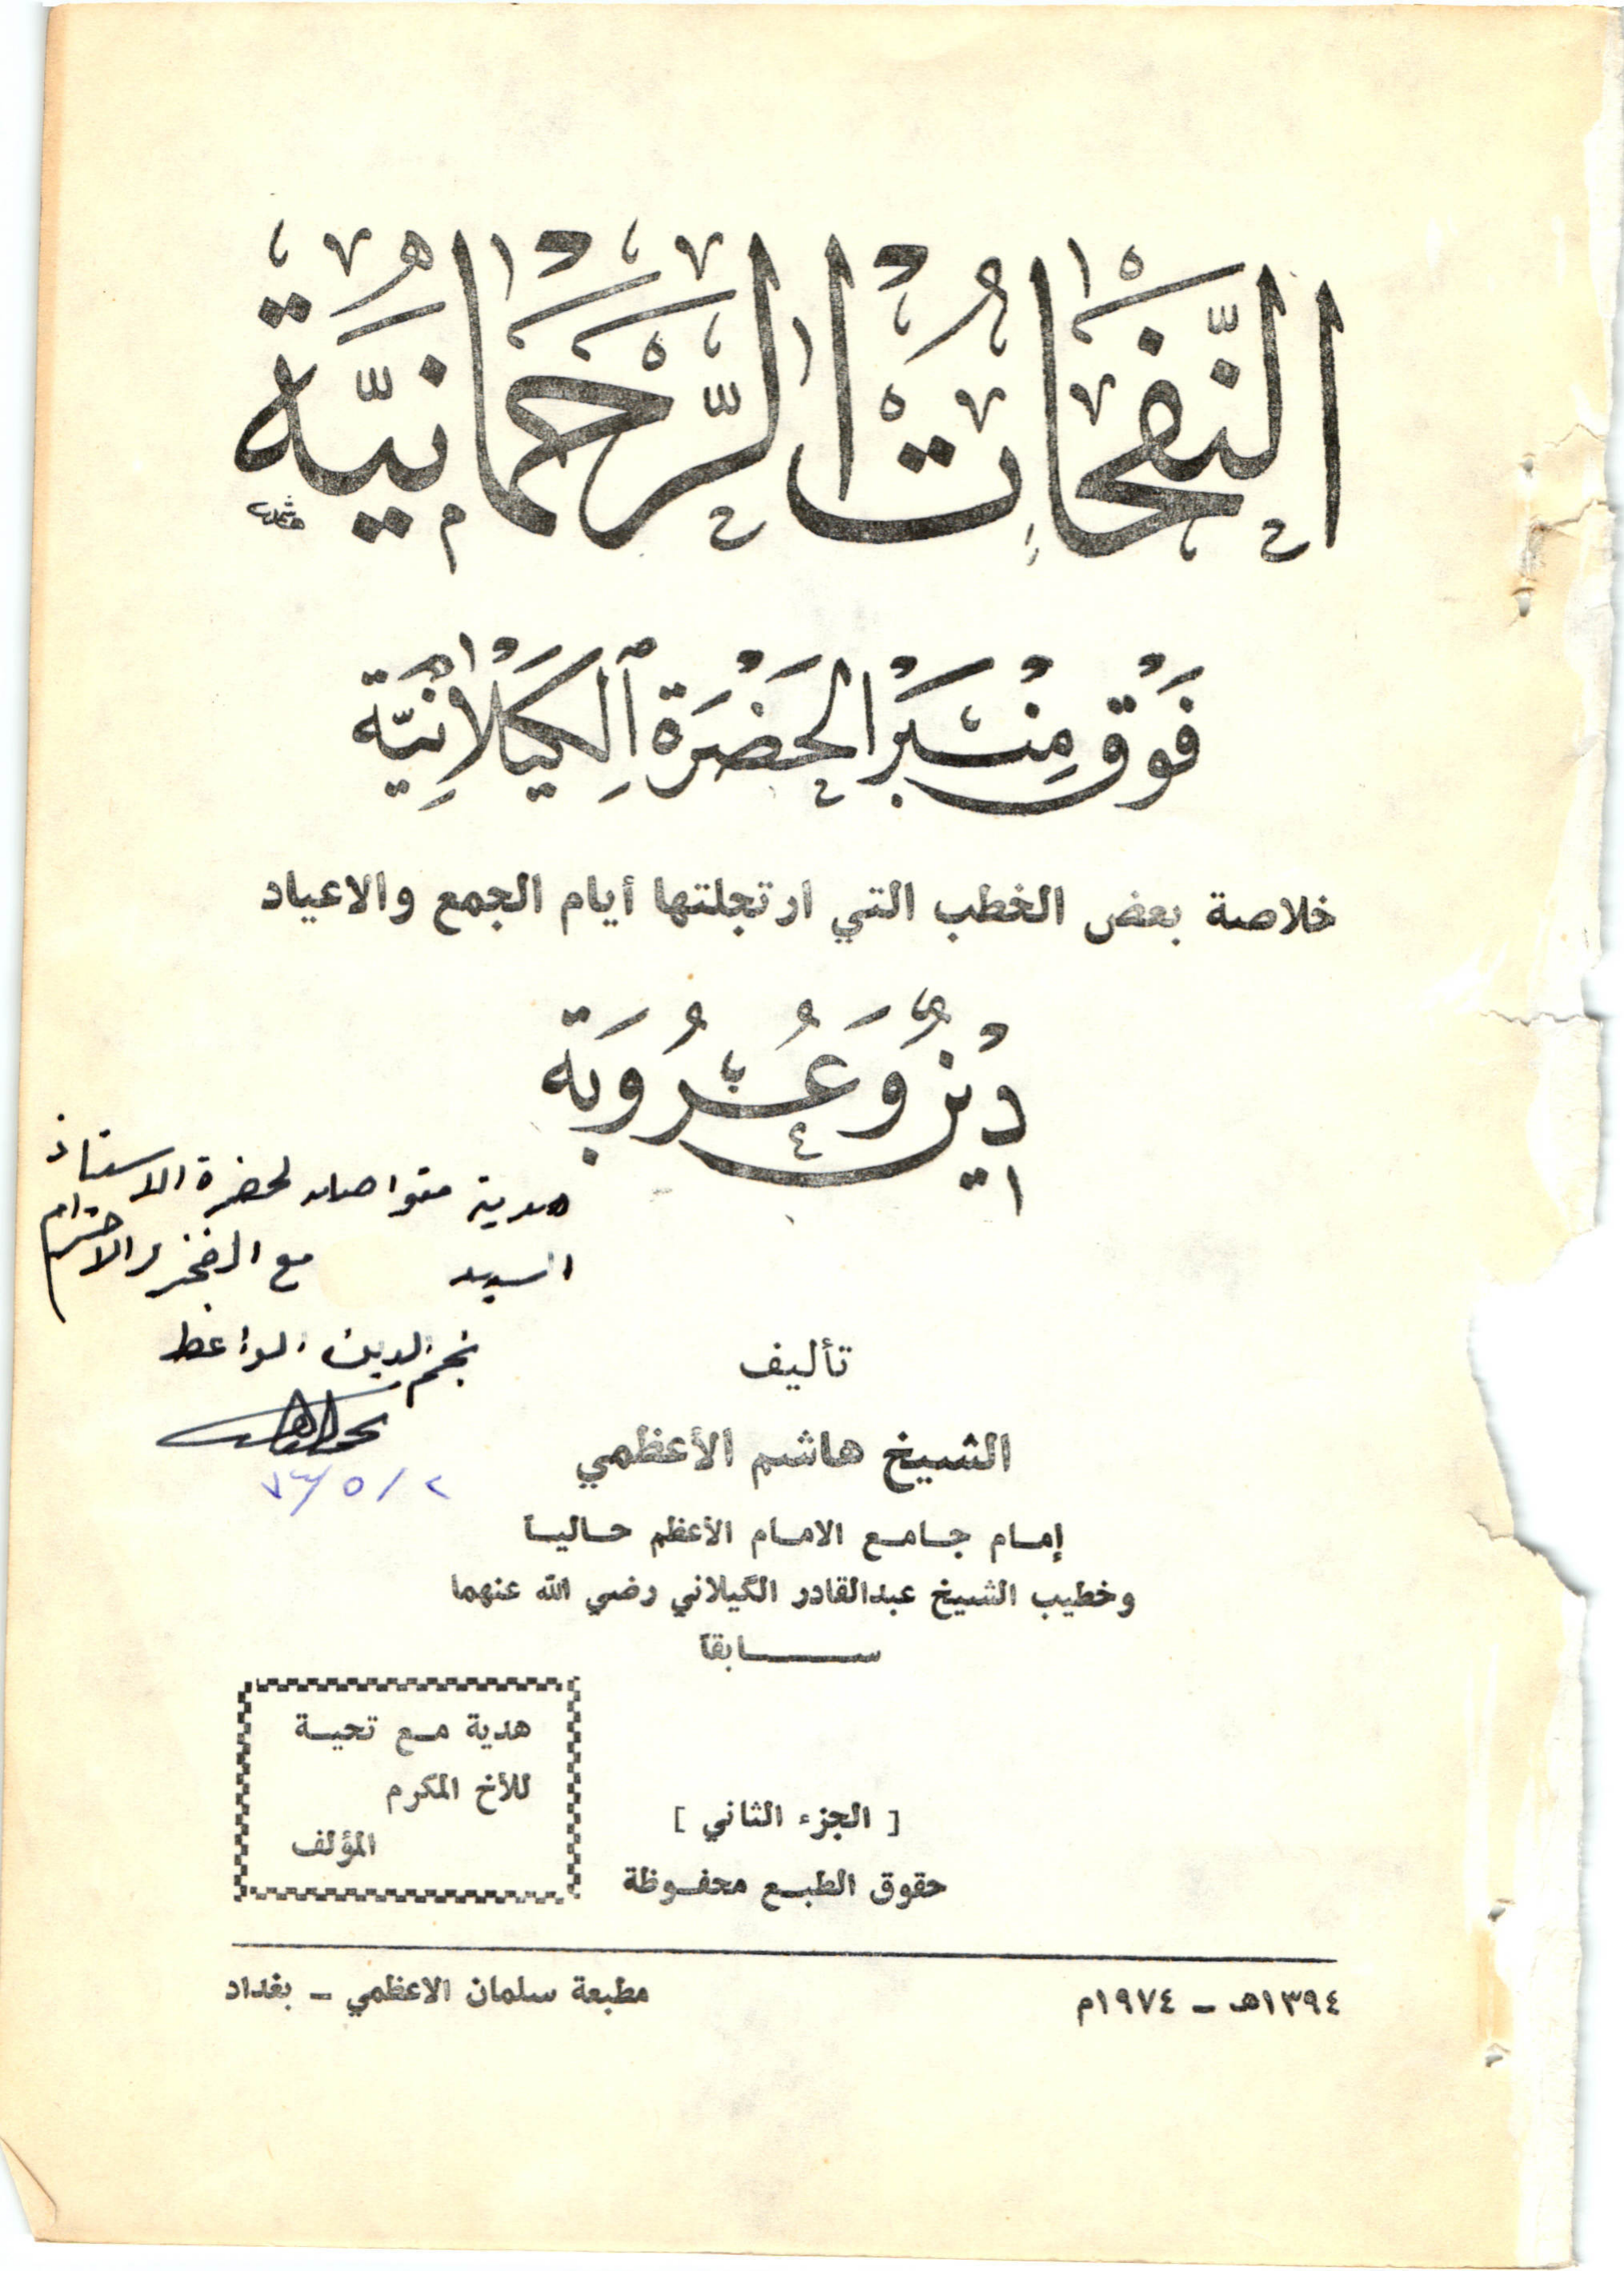 النَّفَحَاتُ الرَّحْمَانِيَّة
فَوْقَ مِنْبَرِ الحَضْرَةِ الكَيْلَانِيَّة
خلاصة بعض الخطب التي ارتجلتها أيام الجمع والاعياد
دِيْنٌ وَعُرُوبَة
هدية متواضعه لحضرة الاستاذ
السيد مع الفخر والاحترام
نجم الدين الواعظ
٢ / ٥ /
تأليف
الشيخ هاشم الأعظمي
إمام جامع الامام الأعظم حاليا
وخطيب الشيخ عبدالقادر الگيلاني رضي الله عنهما
سابقاً
هدية مع تحية
للأخ المكرم
المؤلف
[ الجزء الثاني ]
حقوق الطبع محفوظة
١٣٩٤هـ - ١٩٧٤م
مطبعة سلمان الاعظمي - بغداد